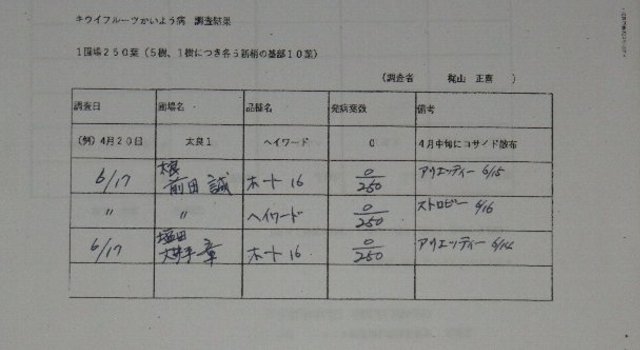 キウイフルーツかいよう病 調査結果
1圃場250葉(5樹、1樹につき各5新梢の基部10葉)
(調査者 梶山 正喜 )
調査日 圃場名 品種名 発病葉数 備考
(例)4月20日 太良1 ヘイワード 0 4月中旬にコサイド散布
太良
6/17 前田 誠 ホート16 0/250 アリエッティー 6/15
〃 〃 ヘイワード 0/250 ストロビー 6/16
塩田
6/17 章 ホート16 0/250 アリエッティー 6/14